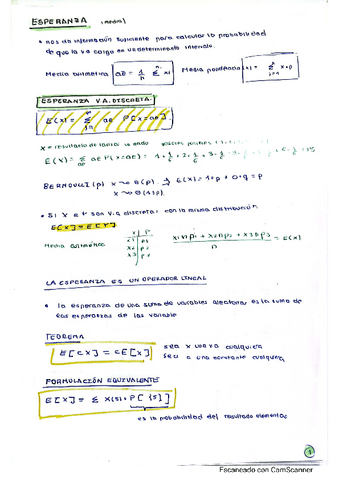 ESPERANZA (media)
• nos da información suficiente para calcular la probabilidad
de que la v.a caiga en un determinado intervalo.
Media aritmética aD = 1/n Σ xi Media ponderada(x) = Σ x·p
ESPERANZA V.A. DISCRETA.
E(x) = Σ ae P[x=ae].
X = resultado de lanzar un dado
E(X) = Σ ae P(x=ae) = 1·1/6 + 2·1/6 + 3·1/6
BERNOULLI (p) X ~ B(p) E(x) = 1·p + 0·q = p
X ~ B(1,p)
• Si X e Y son v.a discretas con la misma distribución
E[X] = E[Y]
Media aritmética
x1np1 + x2np2 + x3np3 / n = E(x)
LA ESPERANZA ES UN OPERADOR LINEAL
• la esperanza de una suma de variables aleatorias es la suma de
las esperanzas de las variable
TEOREMA
E[cX] = cE[X]
sea X una v.a cualquiera
sea c una constante cualquiera
FORMULACIÓN EQUIVALENTE
E[X] = Σ X(s)·P[{s}]
es la probabilidad del resultado elemental
1
Escaneado con CamScanner